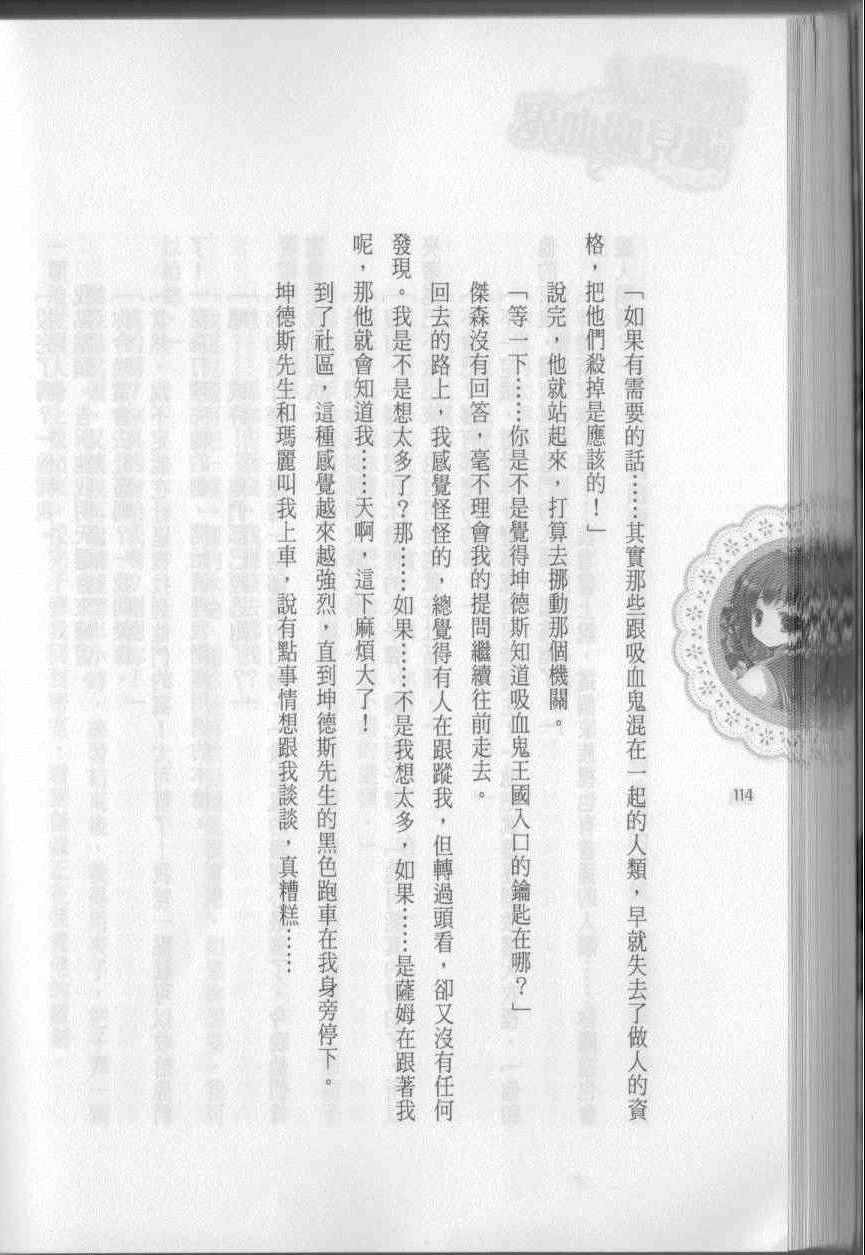 「如果有需要的話……其實那些跟吸血鬼混在一起的人類，早就失去了做人的資
格，把他們殺掉是應該的！」
說完，他就站起來，打算去挪動那個機關。
「等一下……你是不是覺得坤德斯知道吸血鬼王國入口的鑰匙在哪？」
傑森沒有回答，毫不理會我的提問繼續往前走去。
回去的路上，我感覺怪怪的，總覺得有人在跟蹤我，但轉過頭看，卻又沒有任何
發現。我是不是想太多了？那……如果……不是我想太多，如果……是薩姆在跟著我
呢，那他就會知道我……天啊，這下麻煩大了！
到了社區，這種感覺越來越強烈，直到坤德斯先生的黑色跑車在我身旁停下。
坤德斯先生和瑪麗叫我上車，說有點事情想跟我談談，真糟糕……
114